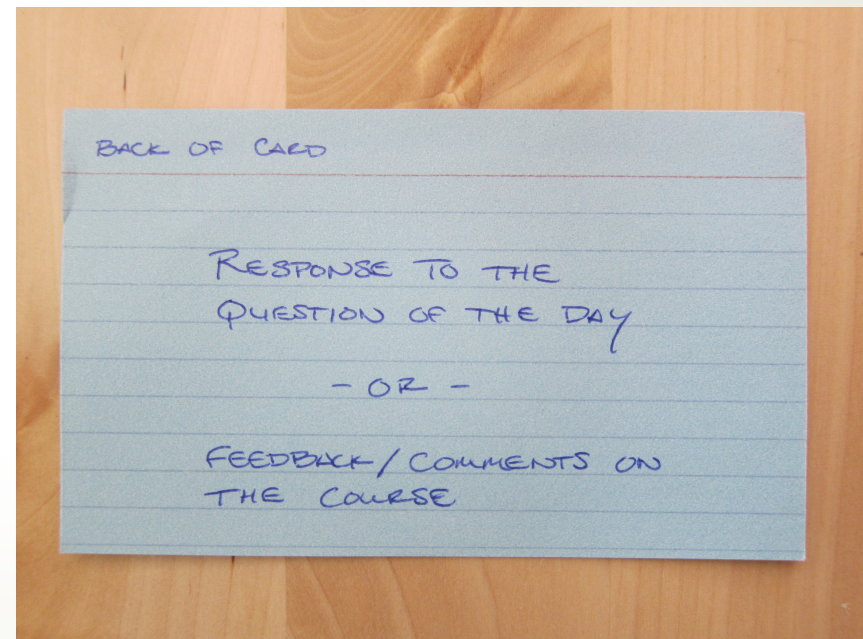 BACK OF CARD
RESPONSE TO THE
QUESTION OF THE DAY
- OR -
FEEDBACK/COMMENTS ON
THE COURSE